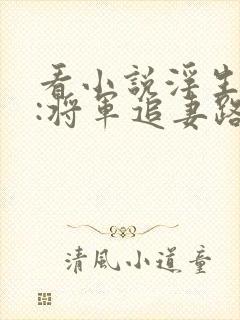 看小說淫生
:將軍追妻路
清風小道童